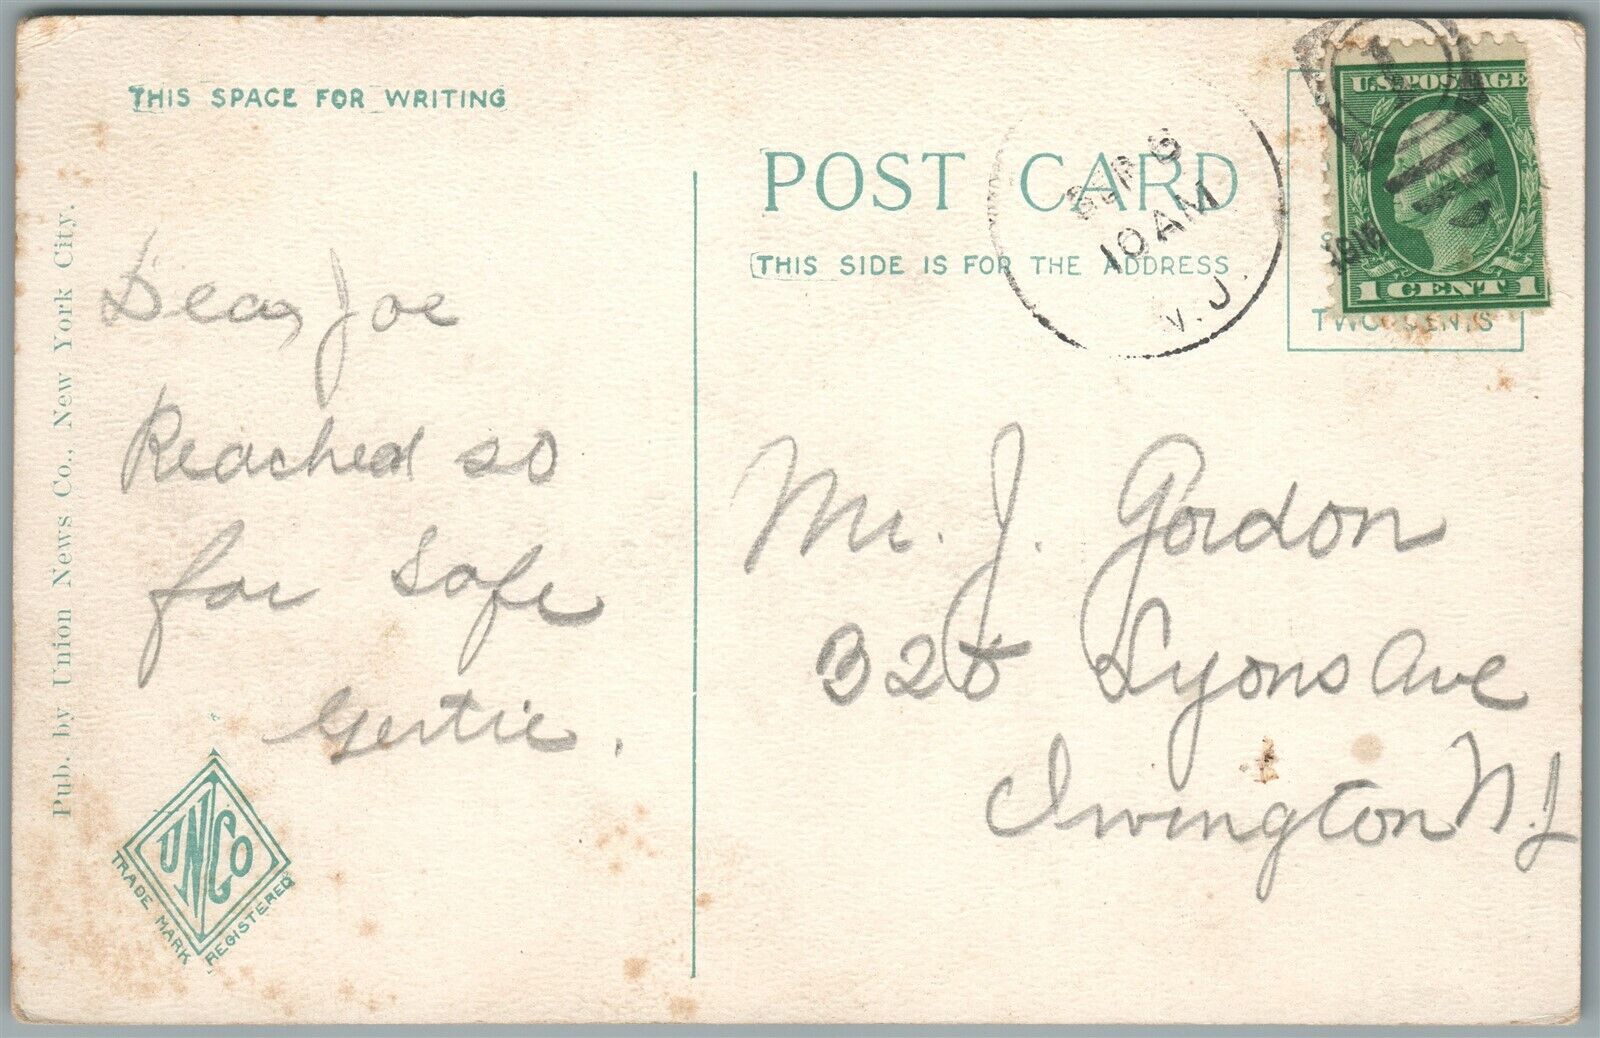 THIS SPACE FOR WRITING
Pub. by Union News Co., New York City.
Dear Joe
Reached so
for safe
Gertie.
UNCo
TRADE MARK
REGISTERED
POST CARD
THIS SIDE IS FOR THE ADDRESS
6
10 AM
N.J.
1916
U.S. POSTAGE
1 CENT 1
TWO CENTS
Mr. J. Gordon
325 Lyons Ave
Irvington N.J